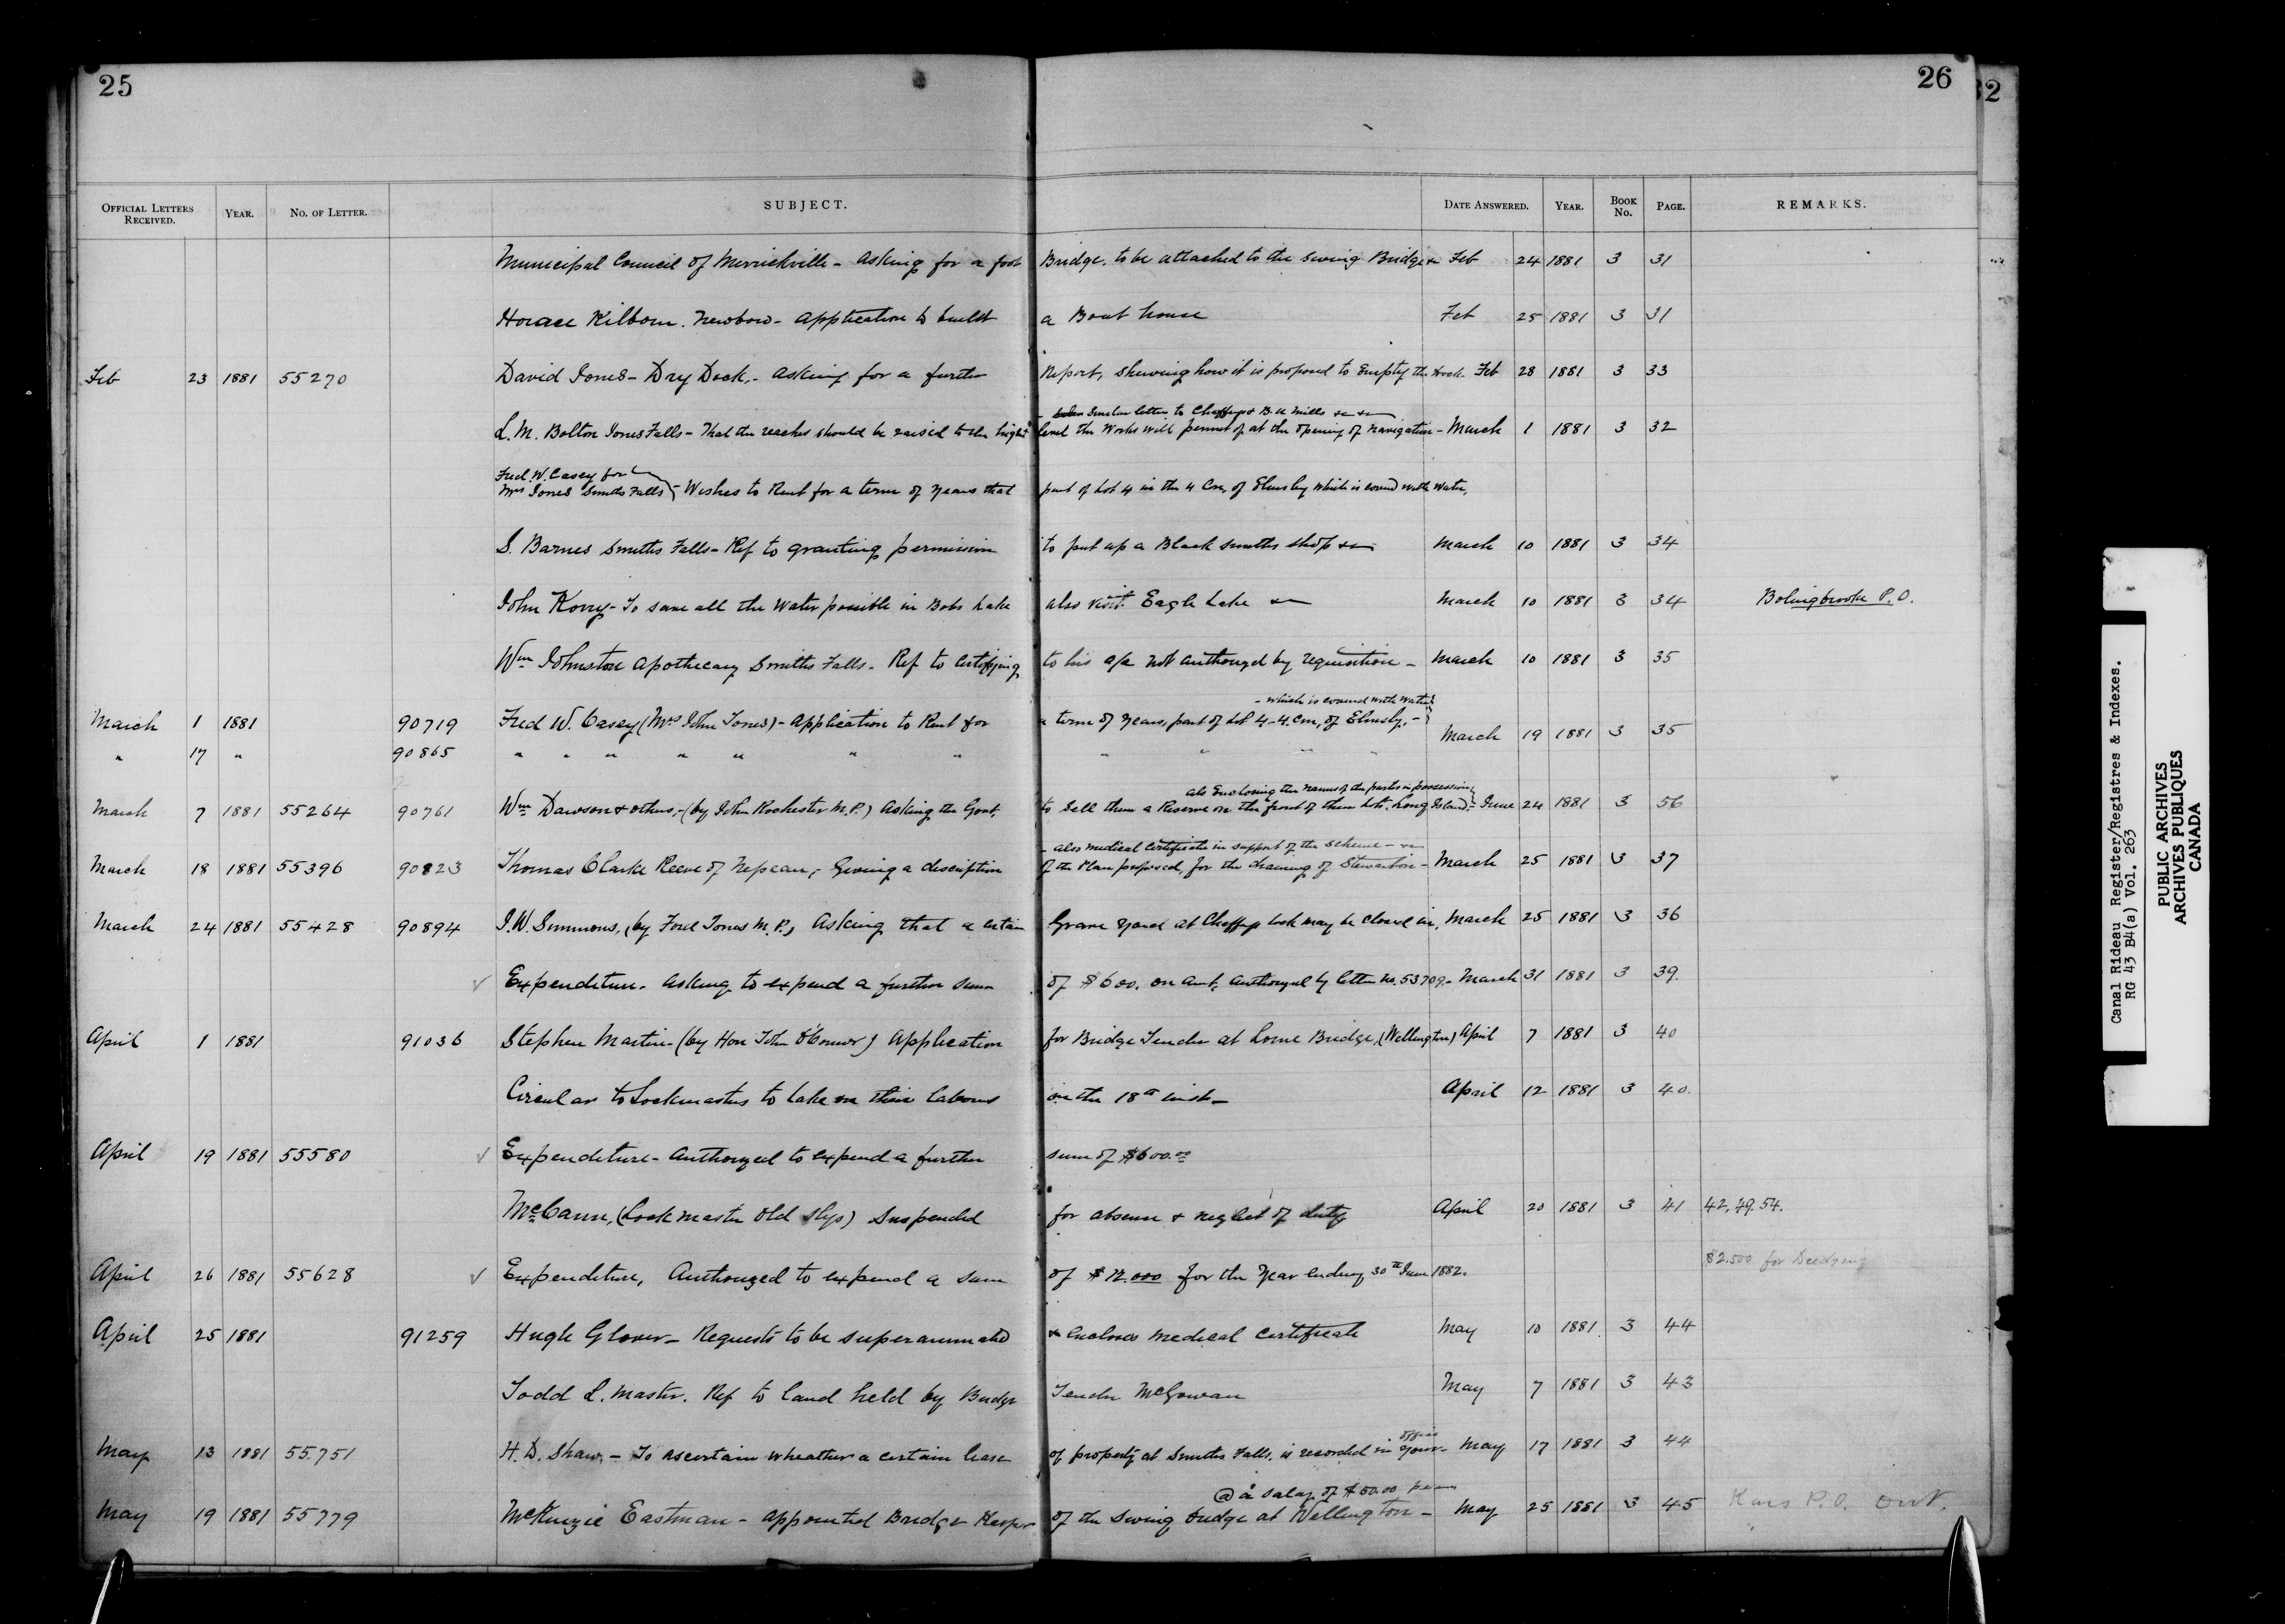 25
26
32
OFFICIAL LETTERS RECEIVED. YEAR. No. OF LETTER. SUBJECT. DATE ANSWERED. YEAR. BOOK No. PAGE. REMARKS.
Municipal Council of Merrickville - Asking for a foot Bridge. to be attached to the swing Bridge Feb 24 1881 3 31
Horace Kilborn. Newboro - Application to build a Boat house Feb 25 1881 3 31
Feb 23 1881 55270 David Jones - Dry Dock, - asking for a further Report, shewing how it is proposed to Empty the Dock - Feb 28 1881 3 33
Similar letter to Chaffeys & B. U Mills &c &c
L. M. Bolton Jones Falls - That the reaches should be raised to the highest level the Works will permit of at the opening of navigation - March 1 1881 3 32
Fred. W. Casey for
Mrs Jones Smiths Falls - Wishes to Rent for a term of Years that part of Lot 4 in the 4 Con, of Elmsley which is covered with water,
S. Barnes Smiths Falls - Ref to granting permission to put up a Black smiths shop &c March 10 1881 3 34
John Korry - To save all the Water possible in Bobs Lake also visit Eagle Lake &c March 10 1881 3 34 Bolingbroke P.O.
Wm Johnston Apothecary Smiths Falls - Ref to Certifying to his a/c not authorized by requisition - March 10 1881 3 35
- which is covered with water
March 1 1881 90719 Fred W. Casey (Mrs John Jones) - Application to Rent for a term of Years, part of Lot 4 - 4. Con, of Elmsley, -
" 17 " 90865 " " " " " " " " " " " March 19 1881 3 35
also Enclosing the names of the parties in possession
March 7 1881 55264 90761 Wm Dawson & others, - (by John Rochester M.P.) Asking the Govt, to Sell them a Reserve on the front of their Lots. Long Island, - June 24 1881 3 56
- also medical Certificate in support of the scheme - &c
March 18 1881 55396 90823 Thomas Clarke Reeve of Nepean, - Giving a description of the Plan proposed, for the draining of Stewarton - March 25 1881 3 37
March 24 1881 55428 90894 J. W. Simmons, (by Ford Jones M.P.) Asking that a certain Grave Yard at Chaffeys Lock may be closed in, March 25 1881 3 36
✓ Expenditure. asking to expend a further sum of $600. on amt, authorized by letter No. 53709. - March 31 1881 3 39.
April 1 1881 91036 Stephen Martin - (by Hon John O'Connor) Application for Bridge Tender at Lorne Bridge, (Wellington) April 7 1881 3 40
Circular to Lockmasters to take on their labours on the 18th inst - April 12 1881 3 40.
April 19 1881 55580 ✓ Expenditure - Authorized to expend a further sum of $600.00
McCann, (Lock master Old Slys) Suspended for absence & neglect of duty April 20 1881 3 41 42. 49. 54.
April 26 1881 55628 ✓ Expenditure, Authorized to expend a sum of $12.000 for the Year ending 30th June 1882. $2.500 for Dredging
April 25 1881 91259 Hugh Glover - Requests to be superannuated & encloses medical Certificate May 10 1881. 3 44
Todd L. Master. Ref to land held by Bridge Tender McGowan May 7 1881 3 43
office
May 13 1881 55.751 H. D. Shaw, - To ascertain wheather a certain lease of property at Smiths Falls, is recorded in your - May 17 1881 3 44
@ a salary of $50.00 per
May 19 1881 55779 McKenzie Eastman - appointed Bridge Keeper of the Swing bridge at Wellington - May 25 1881 3 45 Kars P.O. Ont.
Canal Rideau Register/Registres & Indexes.
RG 43 B4(a) Vol. 263
PUBLIC ARCHIVES
ARCHIVES PUBLIQUES
CANADA